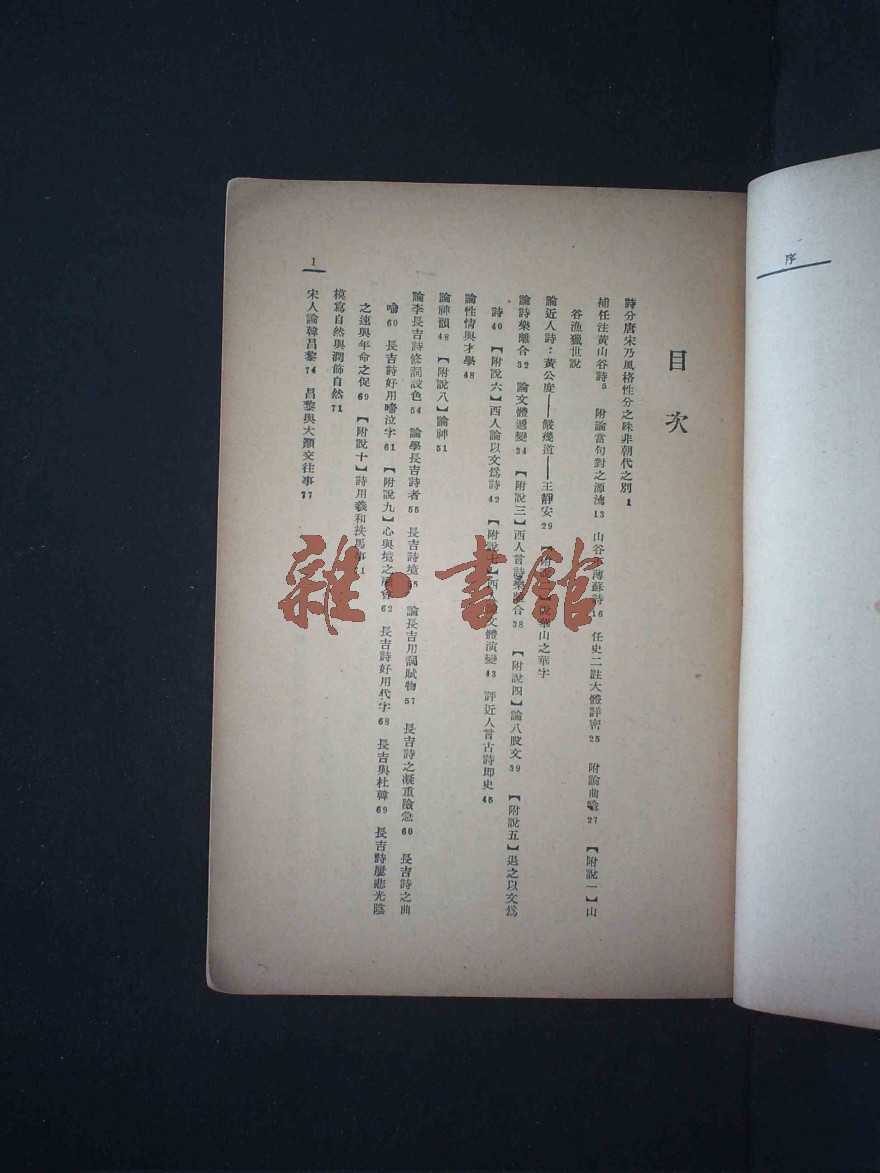 序
目次
詩分唐宋乃風格性分之殊非朝代之別 1
補任注黃山谷詩 5 附論當句對之源流 13 山谷 薄蘇詩 16 任史二註大體詳密 25 附論曲喻 27 【附說一】山
谷漁獵世說
論近人詩：黃公度——嚴幾道——王靜安 29 【附說 華山之華字
論詩樂離合 32 論文體遞變 34 【附說三】西人言詩樂離合 38 【附說四】論八股文 39 【附說五】退之以文爲
詩 40 【附說六】西人論以文爲詩 42 【附說七】西人論文體演變 43 評近人言古詩即史 45
論性情與才學 48
論神韻 48 【附說八】論神 51
論李長吉詩修詞設色 54 論學長吉詩者 55 長吉詩境 55 論長吉用詞賦物 57 長吉詩之凝重險急 60 長吉詩之曲
喻 60 長吉詩好用啼泣字 61 【附說九】心與境之融會 62 長吉詩好用代字 68 長吉與杜韓 69 長吉詩屢悲光陰
之速與年命之促 69 【附說十】詩用羲和扶馬事 71
模寫自然與潤飾自然 71
宋人論韓昌黎 74 昌黎與大顛交往事 77
1
雜·書館